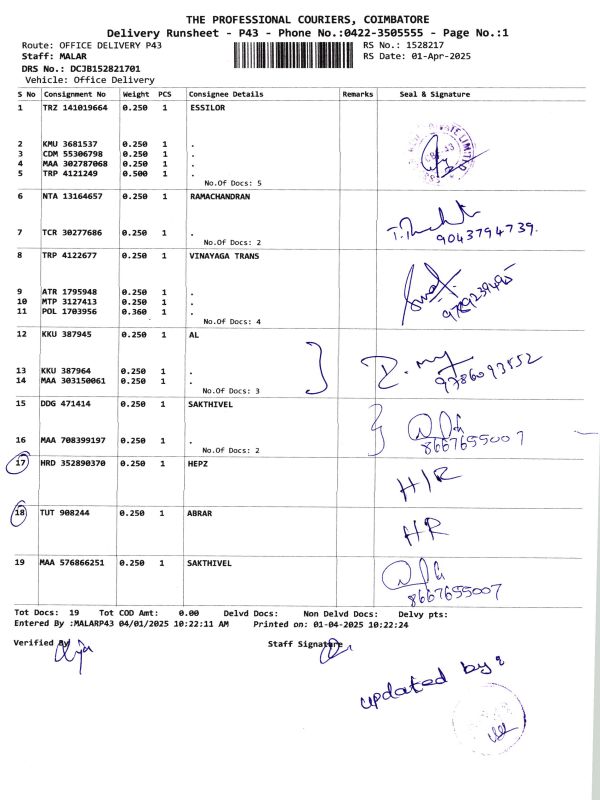 THE PROFESSIONAL COURIERS, COIMBATORE
Delivery Runsheet - P43 - Phone No.:0422-3505555 - Page No.:1
Route: OFFICE DELIVERY P43 RS No.: 1528217
Staff: MALAR RS Date: 01-Apr-2025
DRS No.: DCJB152821701
Vehicle: Office Delivery
S No Consignment No Weight PCS Consignee Details Remarks Seal & Signature
1 TRZ 141019664 0.250 1 ESSILOR
2 KMU 3681537 0.250 1 .
3 CDM 55306798 0.250 1 .
4 MAA 302787068 0.250 1 .
5 TRP 4121249 0.500 1 .
No.Of Docs: 5
6 NTA 13164657 0.250 1 RAMACHANDRAN
7 TCR 30277686 0.250 1 . 9043794739.
No.Of Docs: 2
8 TRP 4122677 0.250 1 VINAYAGA TRANS
9 ATR 1795948 0.250 1 .
10 MTP 3127413 0.250 1 .
11 POL 1703956 0.360 1 .
No.Of Docs: 4
12 KKU 387945 0.250 1 AL
13 KKU 387964 0.250 1 . 9786093552
14 MAA 303150061 0.250 1 .
No.Of Docs: 3
15 DDG 471414 0.250 1 SAKTHIVEL
16 MAA 708399197 0.250 1 . 8667655007
No.Of Docs: 2
17 HRD 352890370 0.250 1 HEPZ H/R
18 TUT 908244 0.250 1 ABRAR HR
19 MAA 576866251 0.250 1 SAKTHIVEL
8667655007
Tot Docs: 19 Tot COD Amt: 0.00 Delvd Docs: Non Delvd Docs: Delvy pts:
Entered By :MALARP43 04/01/2025 10:22:11 AM Printed on: 01-04-2025 10:22:24
Verified By Staff Signature
updated by: